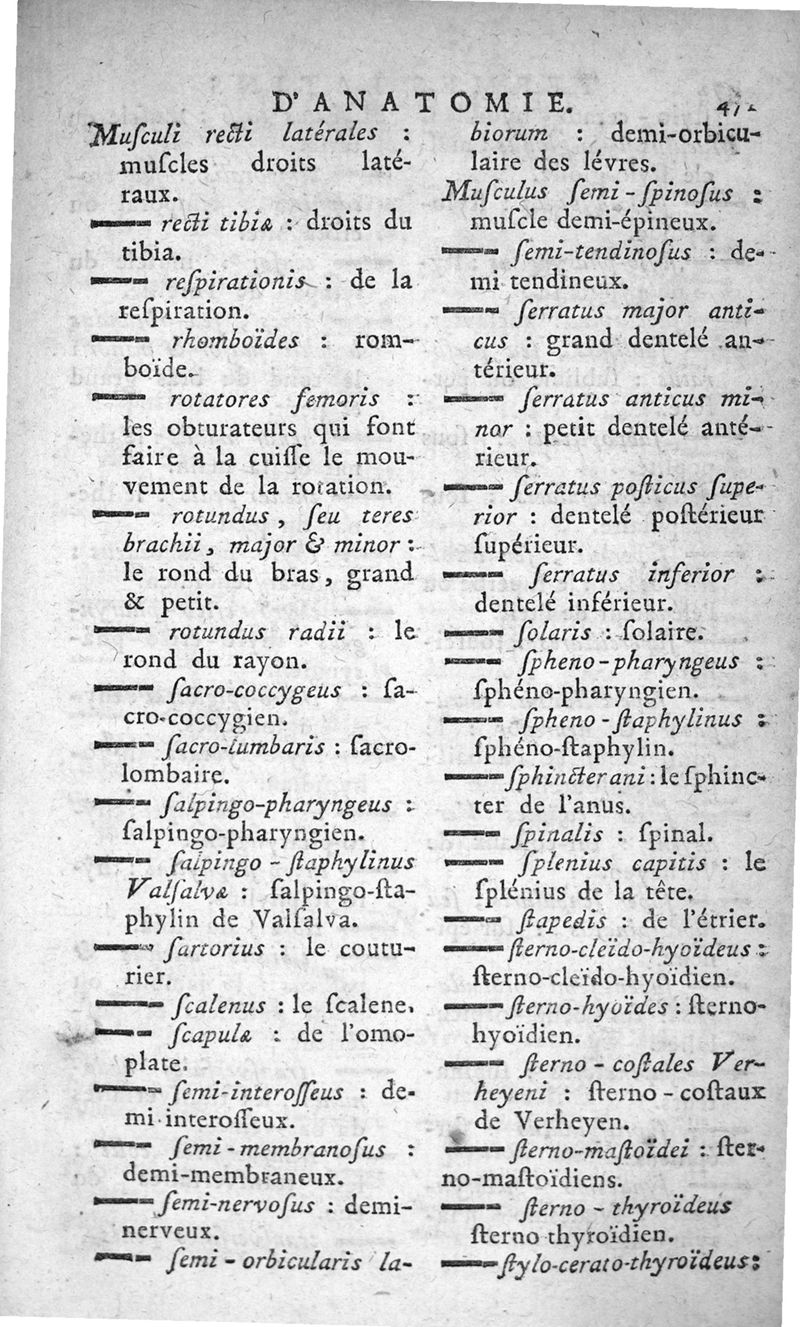 D'ANATOMIE.
Muſculi recti latérales :
muſcles droits laté-
raux.
——— recti tibiæ : droits du
tibia.
——— reſpirationis : de la
reſpiration.
——— rhomboïdes : rom-
boïde.
——— rotatores femoris :
les obturateurs qui font
faire à la cuiſſe le mou-
vement de la rotation.
——— rotundus, ſeu teres
brachii, major & minor :
le rond du bras, grand
& petit.
——— rotundus radii : le
rond du rayon.
——— ſacro-coccygeus : ſa-
cro-coccygien.
——— ſacro-lumbaris : ſacro-
lombaire.
——— ſalpingo-pharyngeus :
ſalpingo-pharyngien.
——— ſalpingo-ſtaphylinus
Valſalvæ : ſalpingo-ſta-
phylin de Valſalva.
——— ſartorius : le coutu-
rier.
——— ſcalenus : le ſcalene.
——— ſcapulæ : de l'omo-
plate.
——— ſemi-interoſſeus : de-
mi-interoſſeux.
——— ſemi-membranoſus :
demi-membraneux.
——— ſemi-nervoſus : demi-
nerveux.
——— ſemi-orbicularis la-
biorum : demi-orbicu-
laire des lévres.
Muſculus ſemi-ſpinoſus :
muſcle demi-épineux.
——— ſemi-tendinoſus : de-
mi tendineux.
——— ſerratus major anti-
cus : grand dentelé an-
térieur.
——— ſerratus anticus mi-
nor : petit dentelé anté-
rieur.
——— ſerratus poſticus ſupe-
rior : dentelé poſtérieur
ſupérieur.
——— ſerratus inferior :
dentelé inférieur.
——— ſolaris : ſolaire.
——— ſpheno-pharyngeus :
ſphéno-pharyngien.
——— ſpheno-ſtaphylinus :
ſphéno-ſtaphylin.
——— ſphincter ani : le ſphinc-
ter de l'anus.
——— ſpinalis : ſpinal.
——— ſplenius capitis : le
ſplénius de la tête.
——— ſtapedis : de l'étrier.
——— ſterno-cleïdo-hyoïdeus :
ſterno-cleïdo-hyoïdien.
——— ſterno-hyoïdes : ſterno-
hyoïdien.
——— ſterno-coſtales Ver-
heyeni : ſterno-coſtaux
de Verheyen.
——— ſterno-maſtoïdei : ſter-
no-maſtoïdiens.
——— ſterno-thyroïdeus
ſterno thyroïdien.
——— ſtylo-cerato-thyroïdeus :